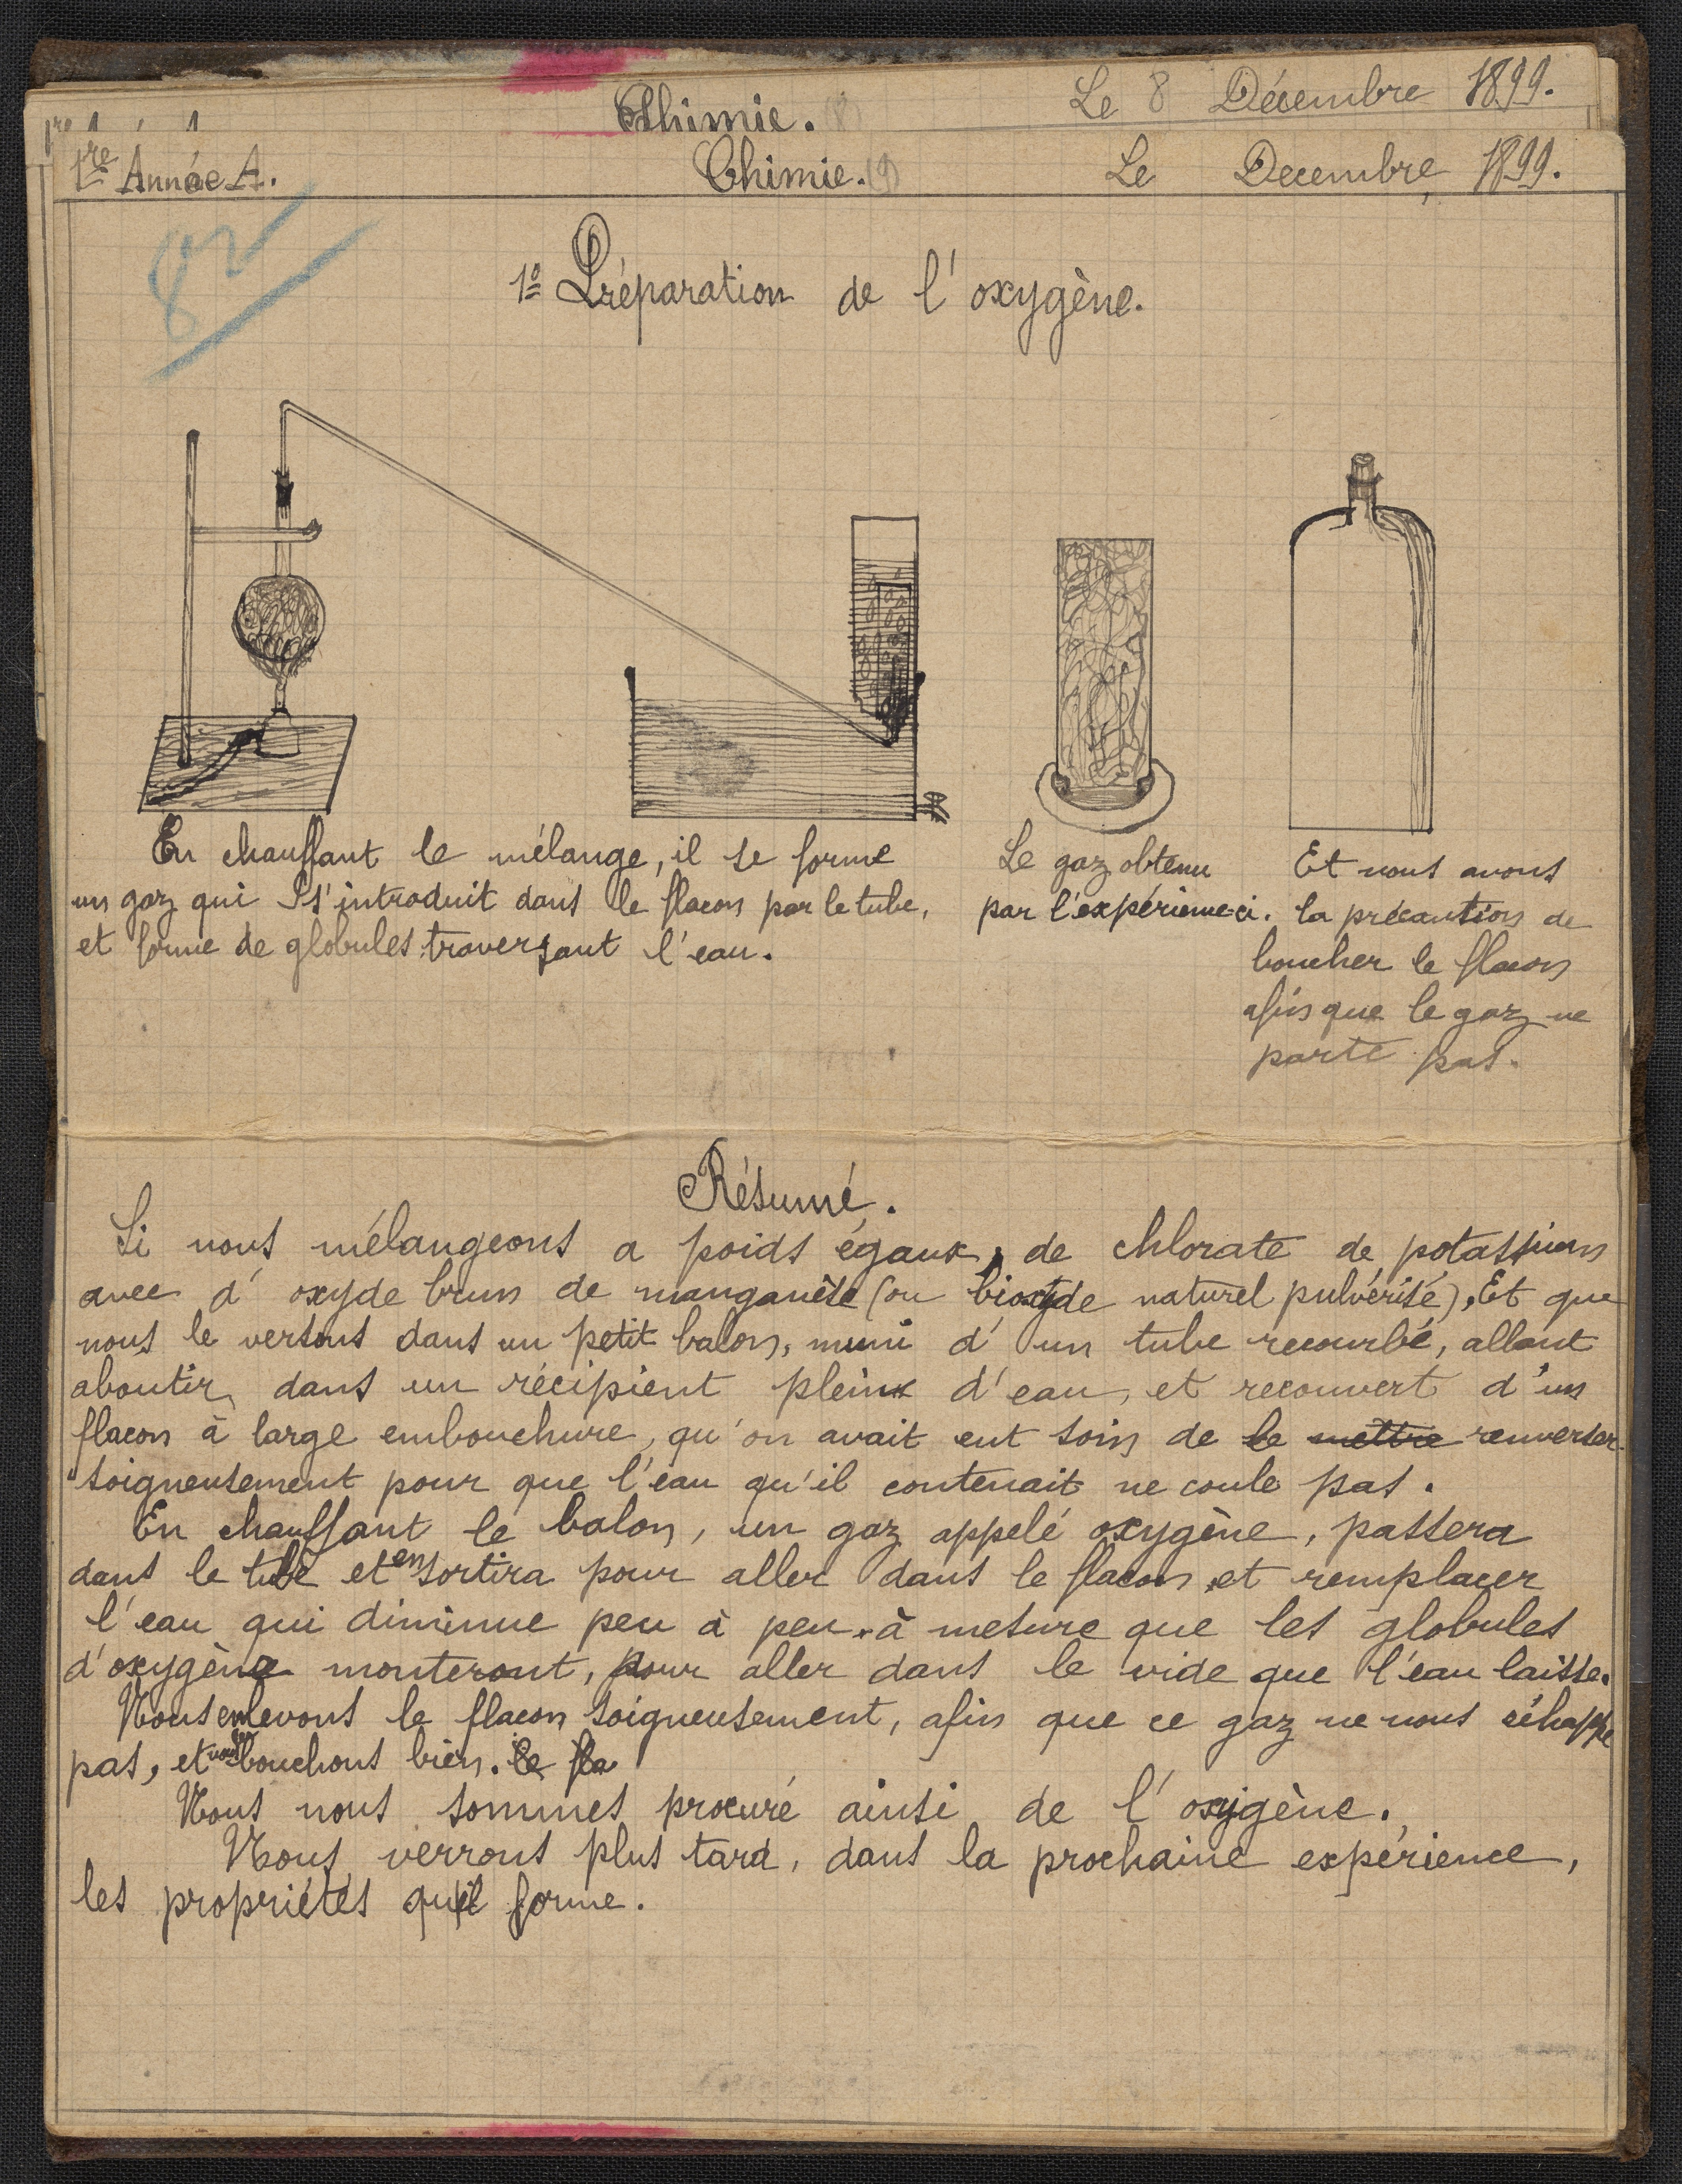 Chimie. (8) Le 8 Décembre 1899.
1re Année A. Chimie. (9) Le Decembre 1899.
82
1º Préparation de l'oxygène.
En chauffant le mélange, il se forme
un gaz qui s'introduit dans le flacon par le tube,
et forme de globules traversant l'eau.
Le gaz obtenu
par l'expérience-ci.
Et nous avons
la précaution de
boucher le flacon
afin que le gaz ne
parte pas.
Résumé.
Si nous mélangeons a poids égaux, de chlorate de potassium
avec d'oxyde brun de manganèse (ou bioxyde naturel pulvérisé), Et que
nous le versons dans un petit balon, muni d'un tube recourbé, allant
aboutir dans un récipient plein d'eau, et recouvert d'un
flacon à large embouchure, qu'on avait eut soin de le mettre renverser
soigneusement pour que l'eau qu'il contenait ne coule pas.
En chauffant le balon, un gaz appelé oxygène, passera
dans le tube et en sortira pour aller dans le flacon et remplacer
l'eau qui diminue peu à peu à mesure que les globules
d'oxygène monteront, pour aller dans le vide que l'eau laisse.
Nous enlevons le flacon soigneusement, afin que ce gaz ne nous échappe
pas, et nous le bouchons bien. le fla
Nous nous sommes procuré ainsi de l'oxygène.
Nous verrons plus tard, dans la prochaine expérience,
les propriétés qu'il forme.